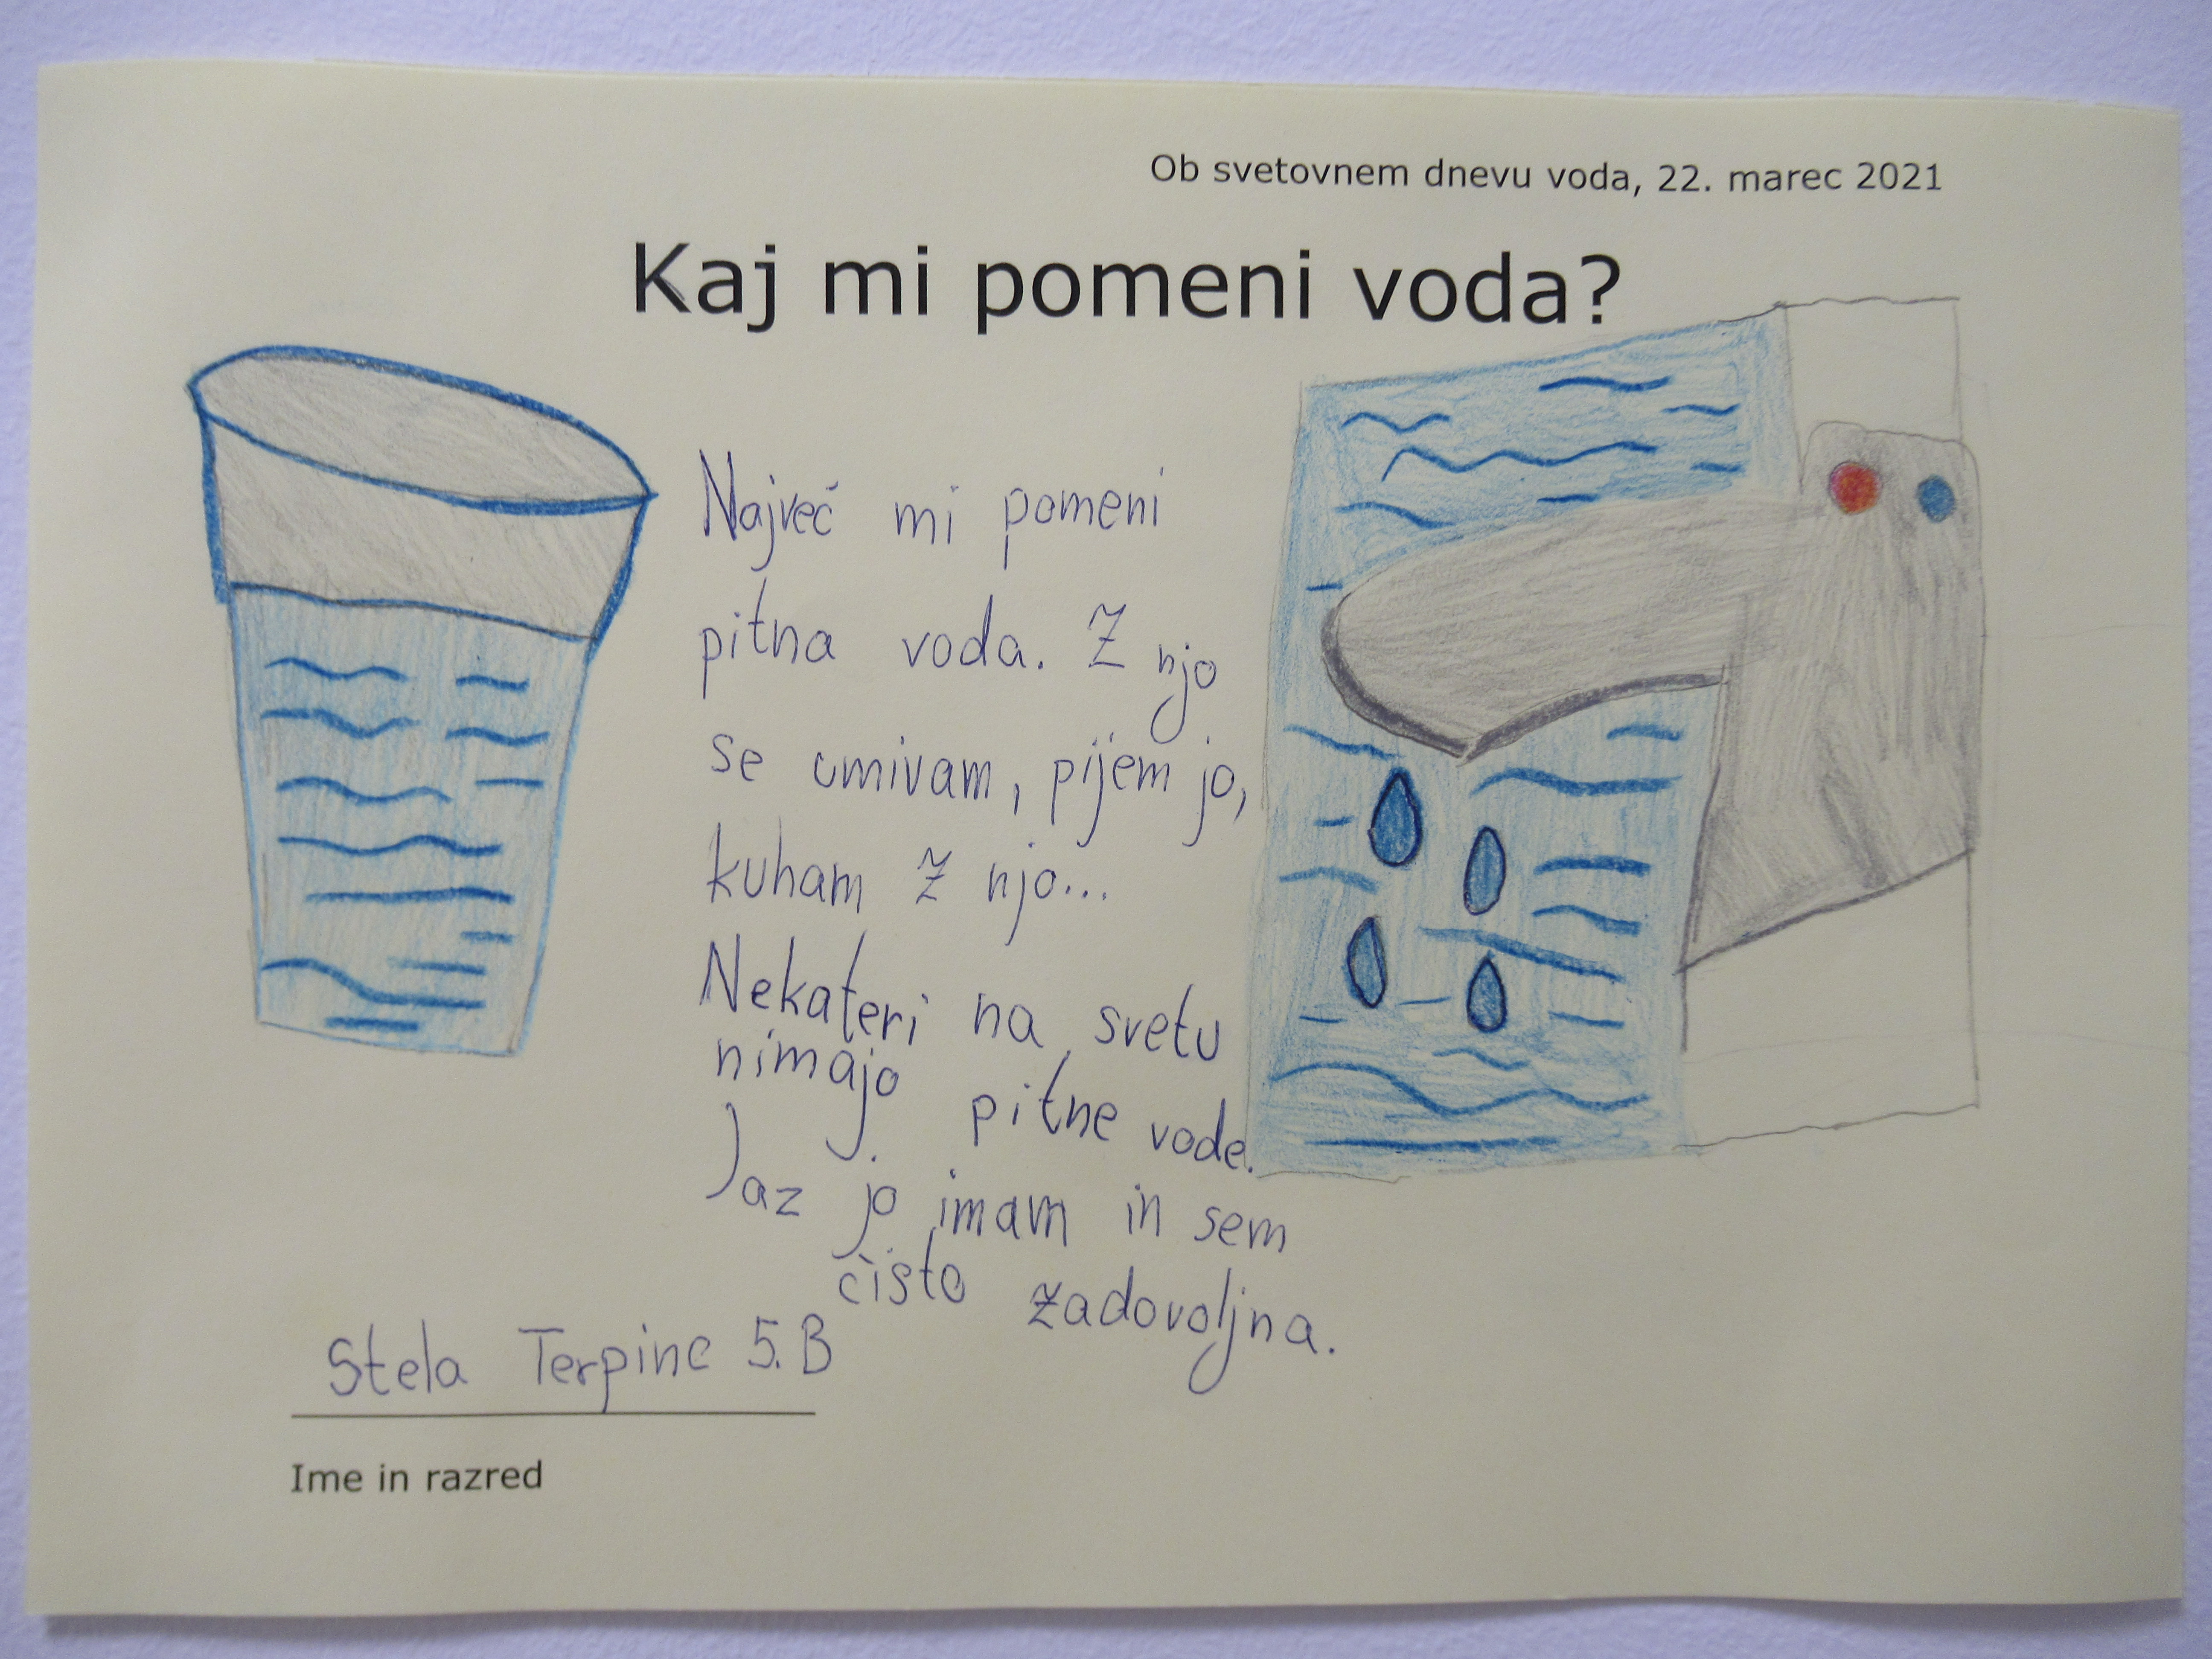 Ob svetovnem dnevu voda, 22. marec 2021
Kaj mi pomeni voda?
Največ mi pomeni
pitna voda. Z njo
se umivam, pijem jo,
kuham z njo...
Nekateri na svetu
nimajo pitne vode.
Jaz jo imam in sem
čisto zadovoljna.
Stela Terpinc 5.B
Ime in razred